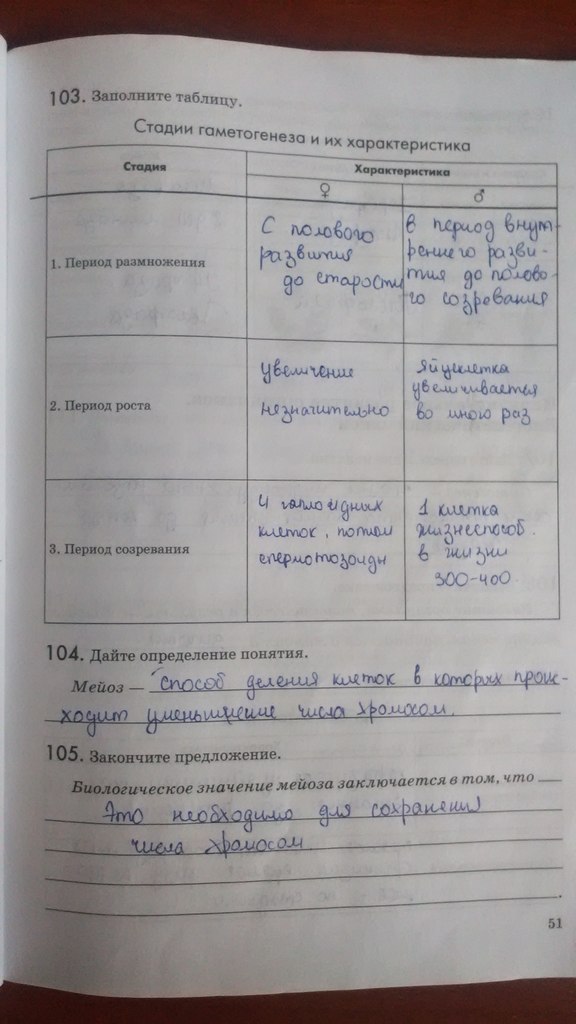 103. Заполните таблицу.
Стадии гаметогенеза и их характеристика
Стадия
Характеристика
♀
♂
1. Период размножения
С полового
развития
до старости
в период внут-
реннего разви-
тия до полово-
го созревания
2. Период роста
увеличение
незначительно
яйцеклетка
увеличивается
во много раз
3. Период созревания
4 гаплоидных
клеток, потом
спермотозоиды
1 клетка
жизнеспособ.
в жизни
300-400
104. Дайте определение понятия.
Мейоз — способ деления клеток в которых проис-
ходит уменьшение числа хромосом.
105. Закончите предложение.
Биологическое значение мейоза заключается в том, что
Это необходимо для сохранения
числа хромосом.
51